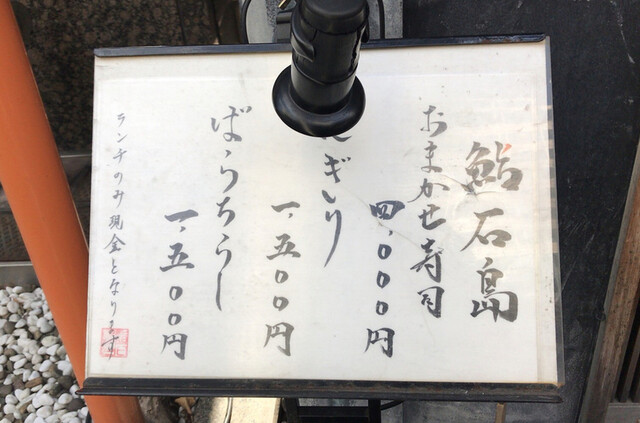 鮨石島
おまかせ寿司
四.000円
ぎり
一.五00円
ばらちらし
一.五00円
ランチのみ現金となります